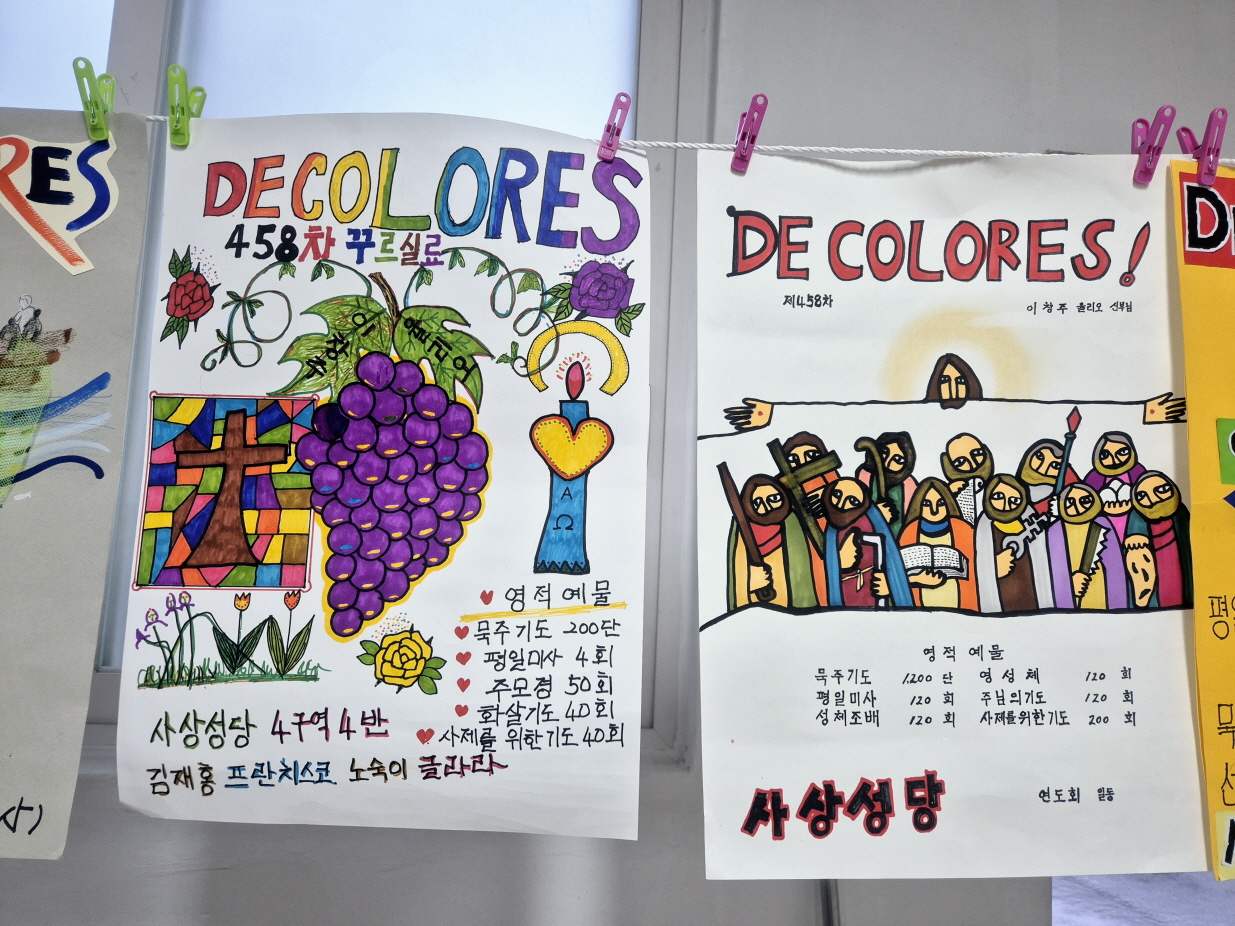 RES
사)
DECOLORES
458차 꾸르실료
이창주 율리오
Α
Ω
영적 예물
묵주기도 200단
평일미사 4회
주모경 50회
화살기도 40회
사제를 위한기도 40회
사상성당 4구역 4반
김재홍 프란치스코 노숙이 글라라
DE COLORES!
제458차
이창주 율리오 신부님
영적 예물
묵주기도 1,200 단 영성체 120 회
평일미사 120 회 주님의기도 120 회
성체조배 120 회 사제를위한기도 200 회
사상성당
연도회 일동
D
평
묵